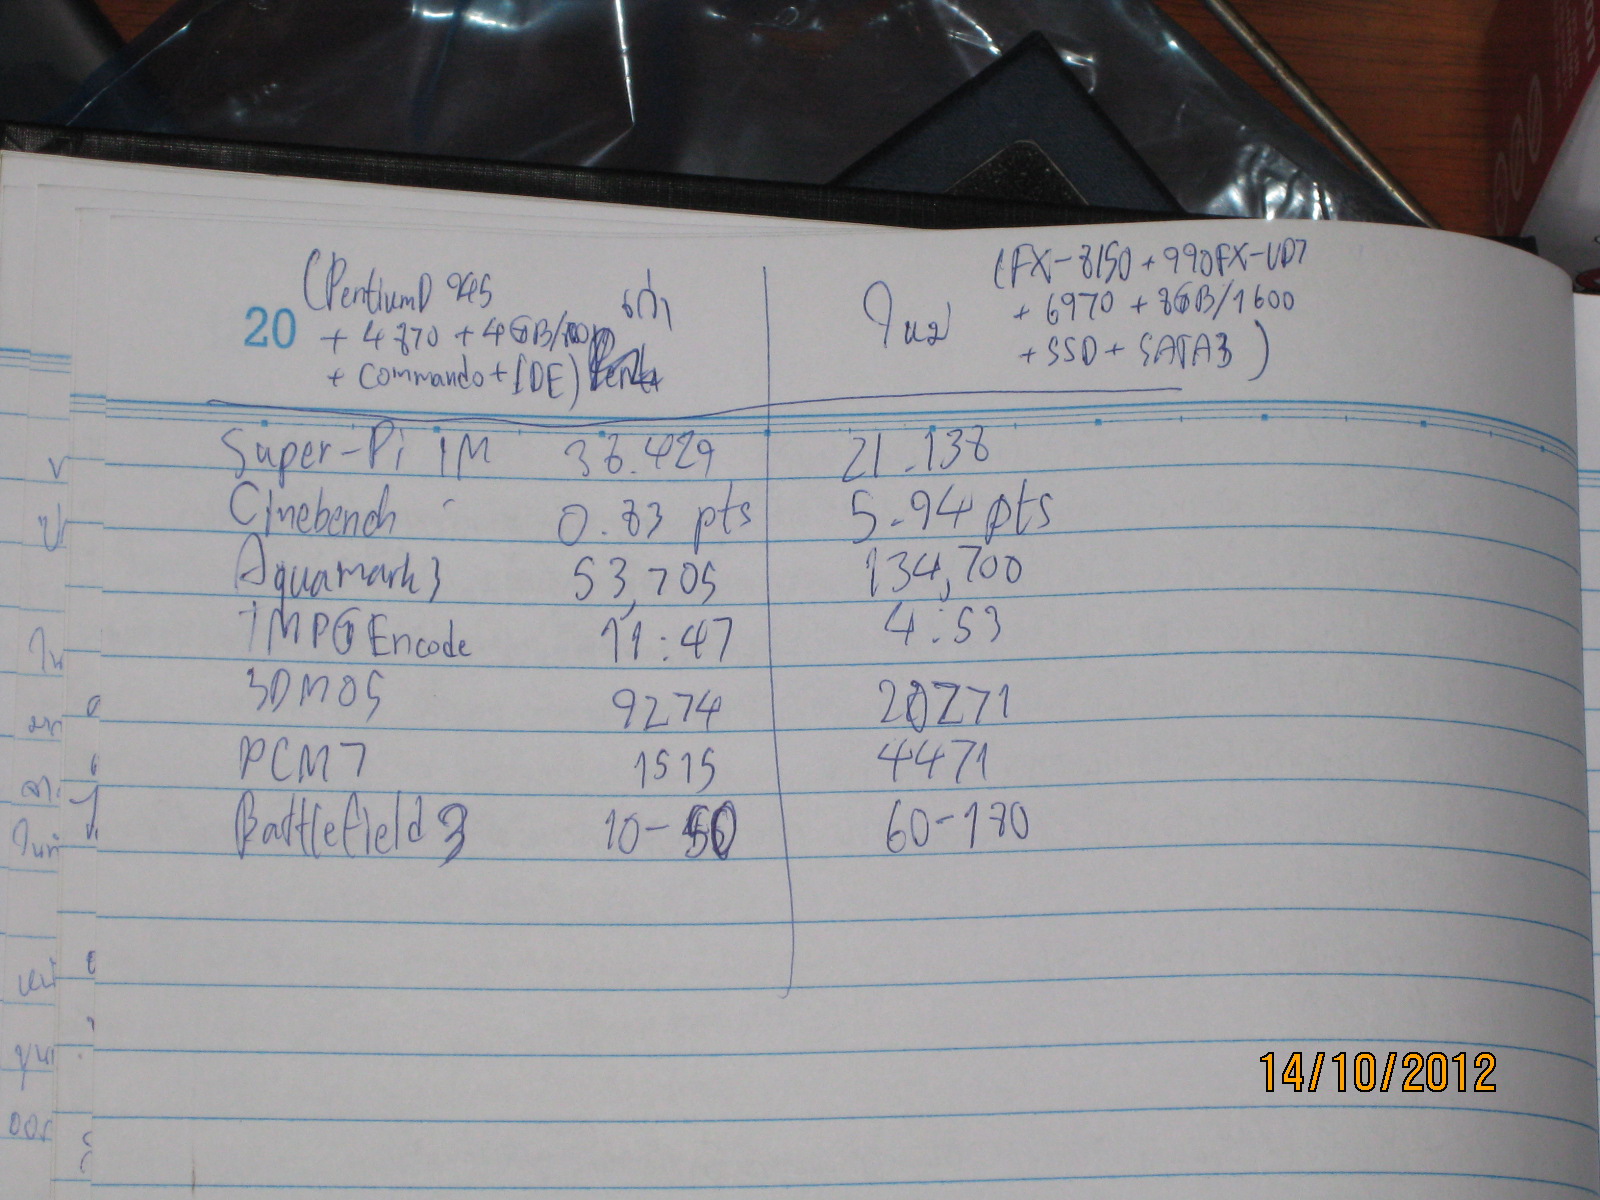 (PentiumD 945 เก่า
20 + 4870 + 4GB/
+ Commando + IDE)
ใหม่ (FX-8150 + 990FX-UD7
+ 6970 + 8GB/1600
+ SSD + SATA3)
Super-Pi 1M 38.429 21.138
Cinebench 0.83 pts 5.94 pts
Aquamark3 53,705 134,700
TMPG Encode 11:47 4:53
3DM05 9274 20271
PCM7 1515 4471
Battlefield 3 10-50 60-180
14/10/2012